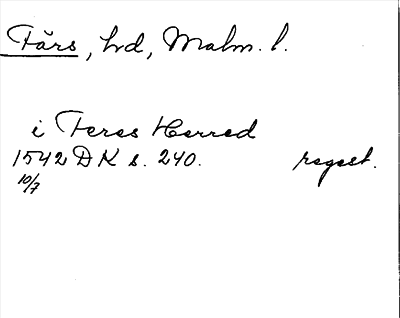 Färs, hd, Malm. l.
i Feres Herred
1542 DK s. 240. regest.
10/7